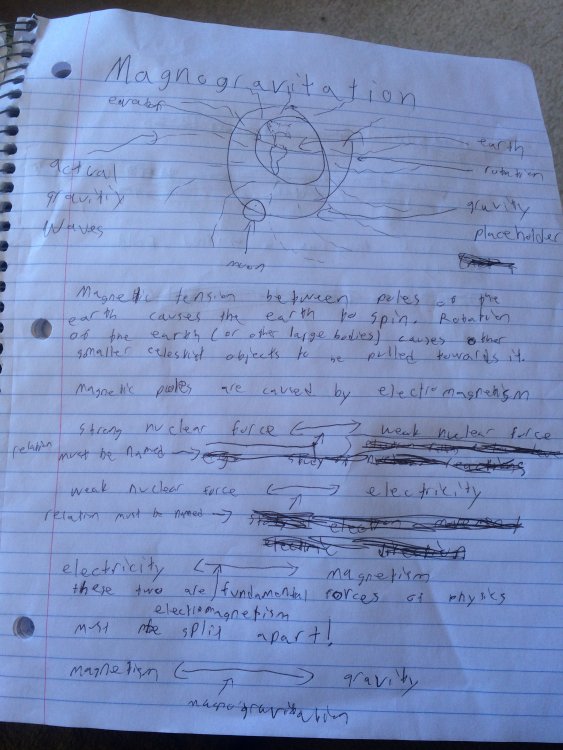 Magnogravitation
earth
actual
gravitiy
waves
earth
rotation
gravity
placeholder
moon
Magnetic tension between poles of the
earth causes the earth to spin. Rotation
of the earth (or other large bodies) causes other
smaller celestist objects to be pulled towards it.
magnetic poles are caused by electromagnetism
strong nuclear force weak nuclear force
relation
must be named
weak nuclear force electricity
relation must be named
electricity magnetism
these two are fundamental forces of physics
electromagnetism
must be split apart!
magnetism gravity
magnogravitation